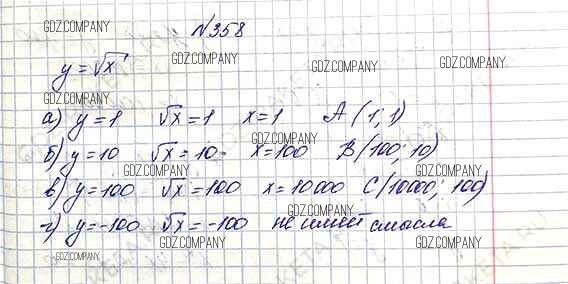 №358
GDZ.COMPANY
GDZ.COMPANY
GDZ.COMPANY
GDZ.COMPANY
y = √x
GDZ.COMPANY
а) y = 1 √x = 1 x = 1 A (1; 1)
GDZ.COMPANY
б) y = 10 √x = 10 x = 100 B (100; 10)
GDZ.COMPANY
GDZ.COMPANY
в) y = 100 √x = 100 x = 10000 C (10000; 100)
GDZ.COMPANY
г) y = -100 √x = -100 не имеет смысла
GDZ.COMPANY
GDZ.COMPANY
GDZ.COMPANY